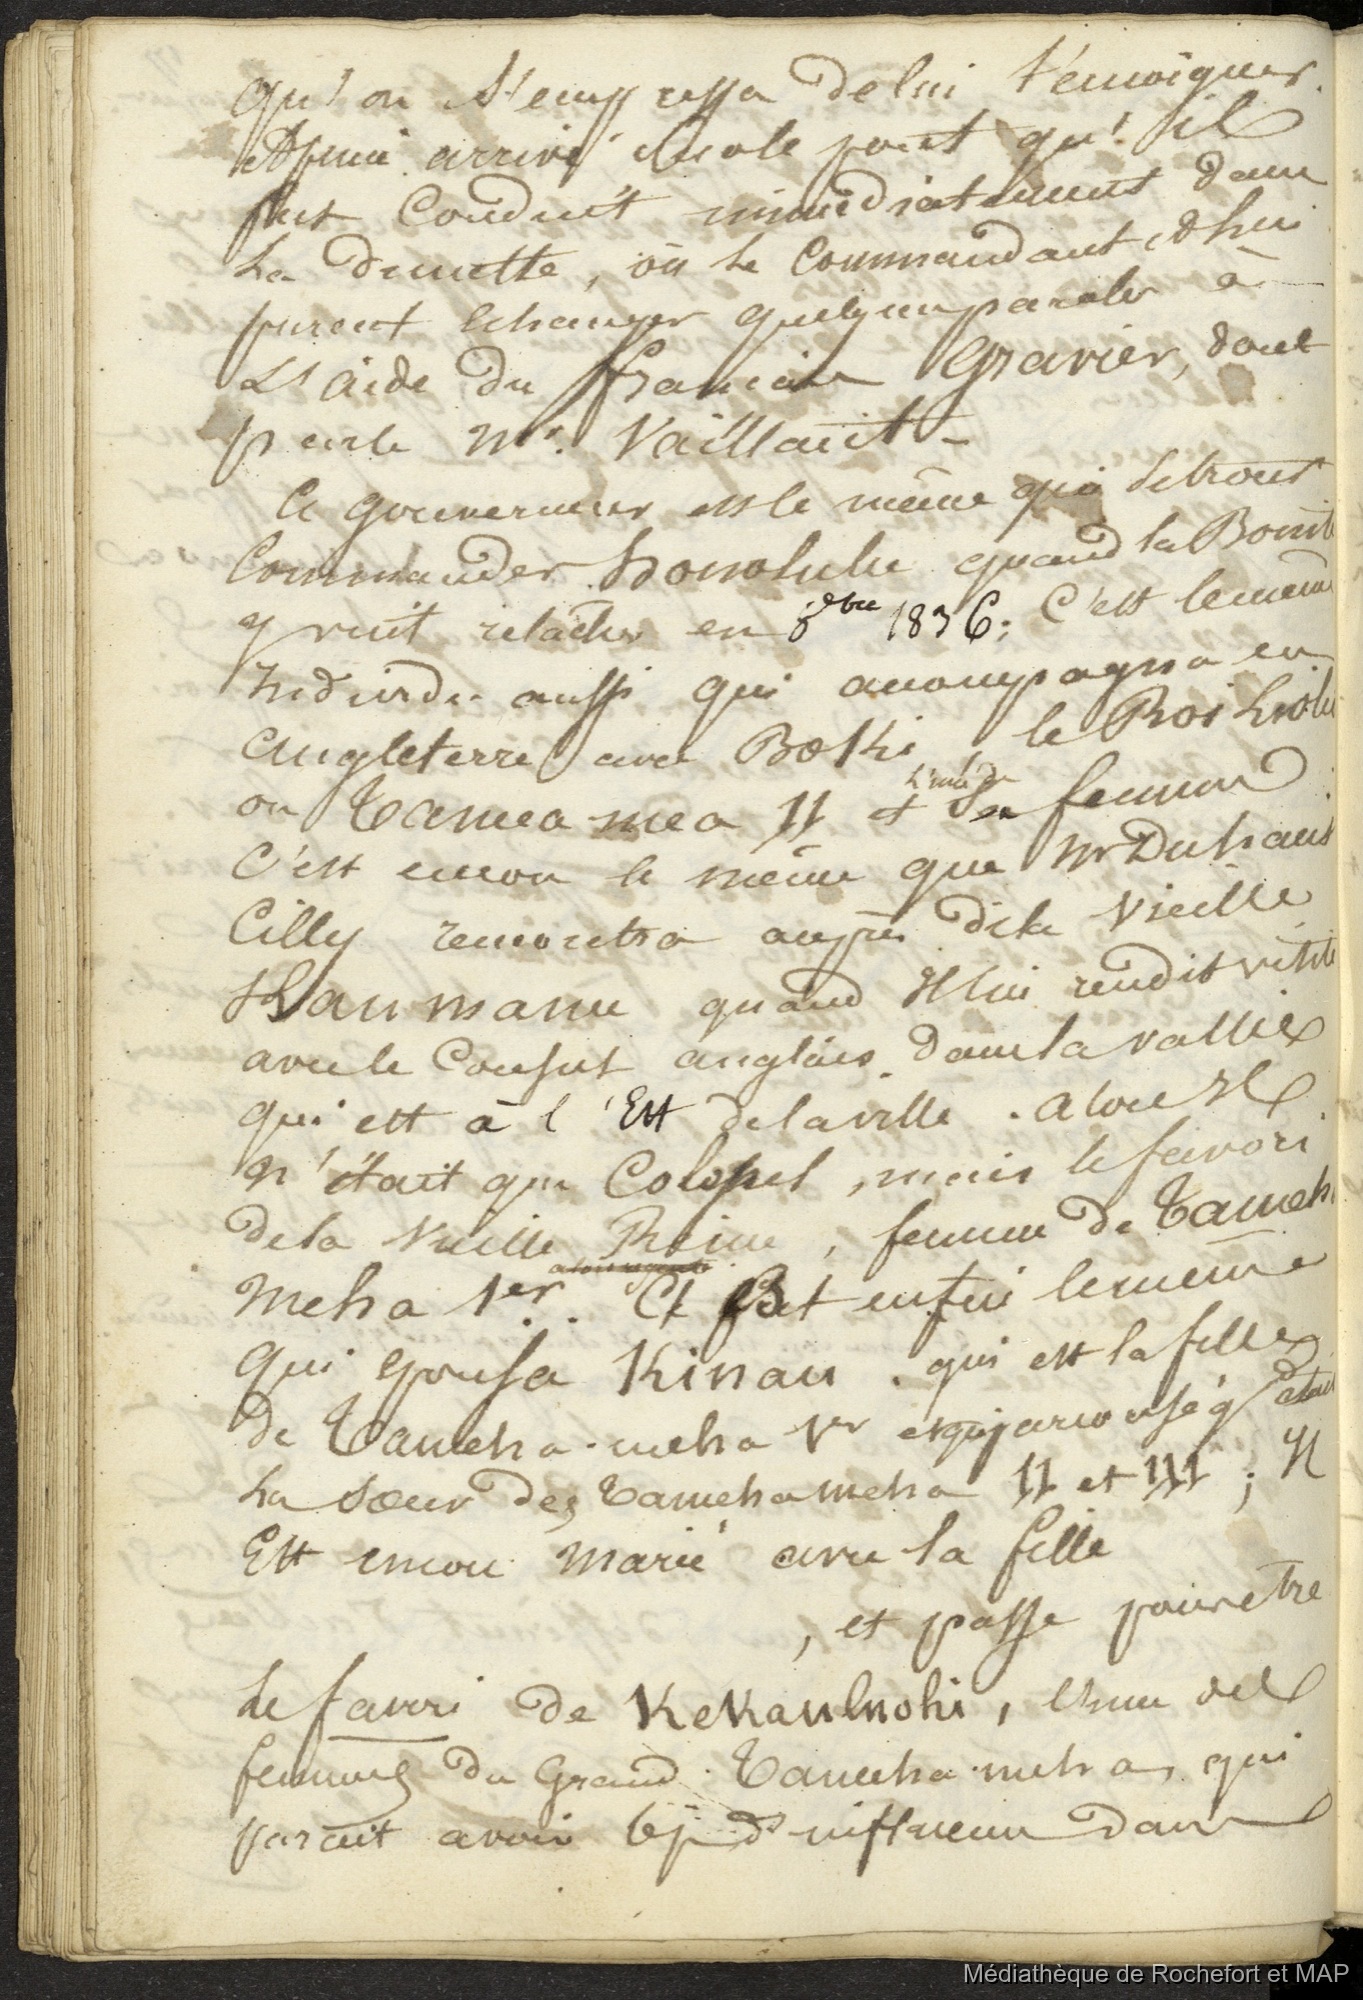 qu'on s'empressa de lui témoigner.
A peine arrivé sur le pont qu'il
fut conduit immédiatement dans
la dunette, où le Commandant et lui
purent échanger quelques paroles à
l'aide du français Gravier, dont
parle Mr. Vaillant –
Ce gouverneur est le même qui se trouvait
Commander honolulu quand la Bonite
y vint relâcher en 8bre 1836; C'est le même
Individu aussi qui accompagna en
Angleterre avec Boki, le Roi Lioliu
ou Tamea mea II et l'une de sa femme
C'est encore le même que Mr Duhaut
Cilly rencontra auprès de la vieille
Kaumanu quand Il lui rendit visite
avec le Consul anglais dans la vallée
qui est à l'Est de la ville. alors Il
n'était que Colonel, mais le favori
de la vieille Reine, femme de Tameh
alors régente
meha 1er.. Et est enfin le même
qui épousa Kinau. qui est la fille
de Tameha-meha 1er et qui par conség était
la sœur des Tamehameha II et III; Il
Est encore marié avec la fille
, et passe pour être
le favori de KeKauluohi, l'une des
femmes du Grand Tameha-meha, qui
parait avoir bp d'influence dans
Médiathèque de Rochefort et MAP